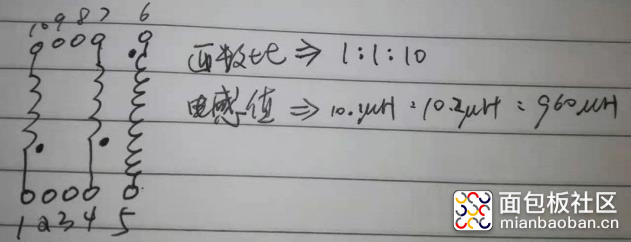 10 9 8 7 6
匝数比 ⇒ 1:1:10
电感值 ⇒ 10.1μH:10.2μH:960μH
1 2 3 4 5
面包板社区
mianbaoban.cn